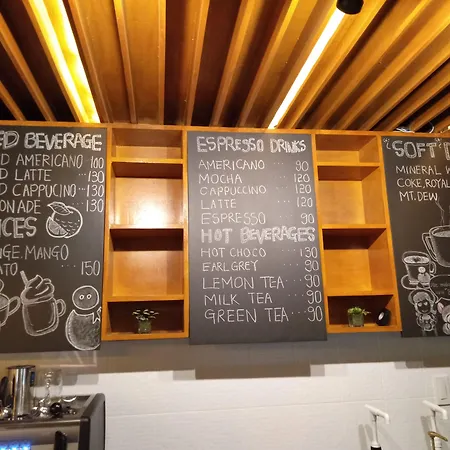 ED BEVERAGE
ED AMERICANO 100
ED LATTE ... 130
ED CAPPUCINO .. 130
ONADE ..... 130
ICES
NGE, MANGO
ATO ... 150
ESPRESSO DRINKS
AMERICANO .... 90
MOCHA ....... 120
CAPPUCCINO ... 120
LATTE ........ 120
ESPRESSO .... 90
HOT BEVERAGES
HOT CHOCO ..... 130
EARL GREY ..... 90
LEMON TEA ... 90
MILK TEA .... 90
GREEN TEA ... 90
"SOFT" D
MINERAL W
COKE, ROYAL
MT. DEW